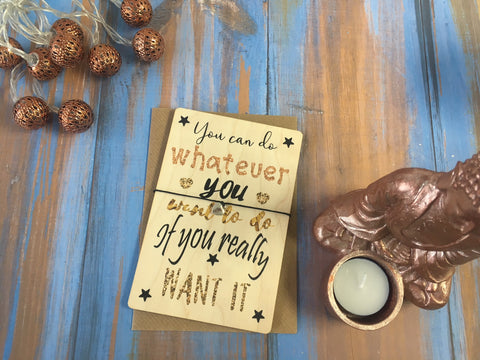 You can do
whatever
you
want to do
If you really
WANT IT